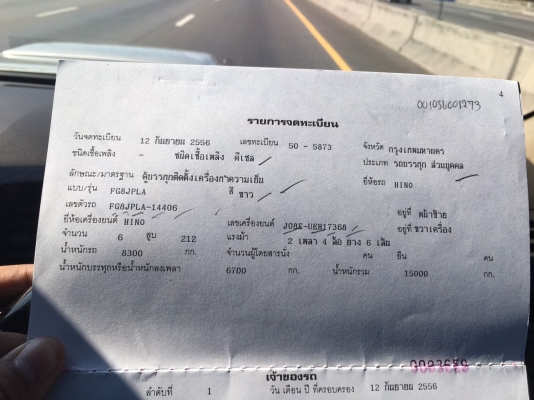 4
001086001273
รายการจดทะเบียน
วันจดทะเบียน 12 กันยายน 2556 เลขทะเบียน 50 - 5873 จังหวัด กรุงเทพมหานคร
ชนิดเชื้อเพลิง - ชนิดเชื้อเพลิง ดีเซล ประเภท รถบรรทุก ส่วนบุคคล
ลักษณะ/มาตรฐาน ตู้บรรทุกติดตั้งเครื่องทำความเย็น ยี่ห้อรถ HINO
แบบ/รุ่น FG8JPLA สี ขาว
เลขตัวรถ FG8JPLA-14406 อยู่ที่ หน้าซ้าย
ยี่ห้อเครื่องยนต์ HINO เลขเครื่องยนต์ J08E-UEH17368 อยู่ที่ ขวาเครื่อง
จำนวน 6 สูบ 212 แรงม้า 2 เพลา 4 ล้อ ยาง 6 เส้น
น้ำหนักรถ 8300 กก. จำนวนผู้โดยสารนั่ง คน ยืน คน
น้ำหนักบรรทุกหรือน้ำหนักลงเพลา 6700 กก. น้ำหนักรวม 15000 กก.
เจ้าของรถ
ลำดับที่ 1 วัน เดือน ปี ที่ครอบครอง 12 กันยายน 2556